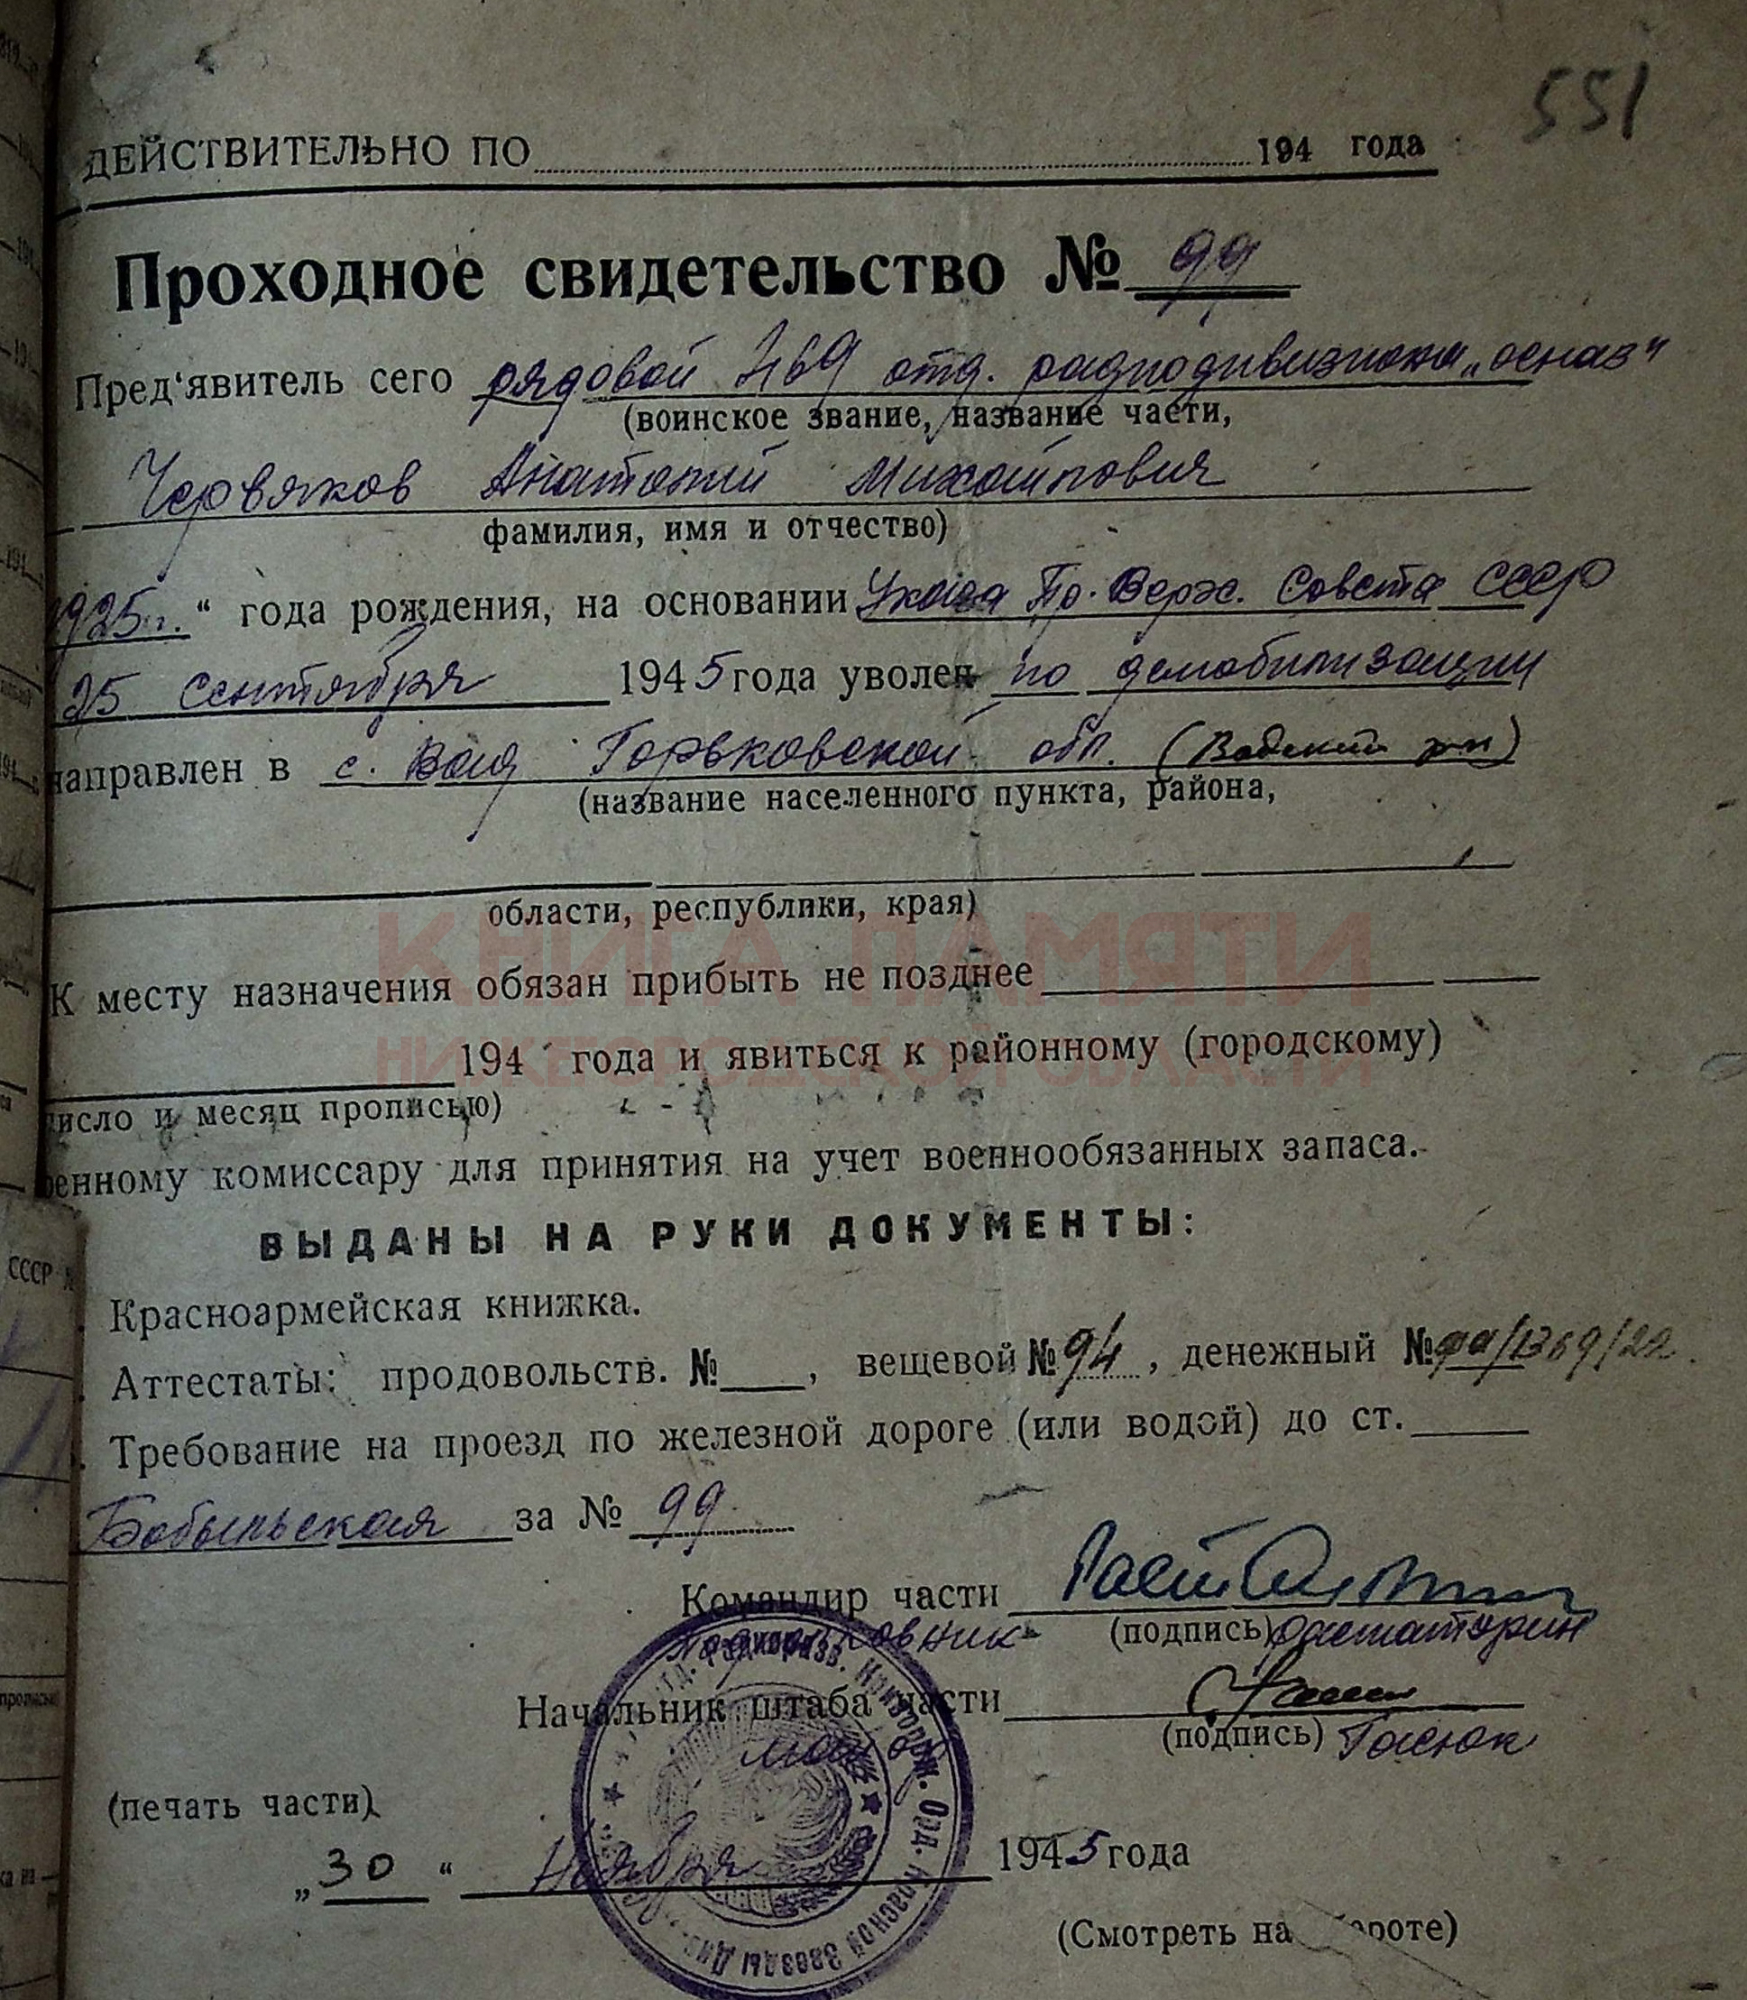 551
ДЕЙСТВИТЕЛЬНО ПО 194 года
Проходное свидетельство № 99
Пред‘явитель сего рядовой 469 отд. радиодивизиона „осназ“
(воинское звание, название части,
Червяков Анатолий Михайлович
фамилия, имя и отчество)
1925г. “ года рождения, на основании Указа Пр. Верх. Совета СССР
25 Сентября 1945 года уволен по демобилизации
направлен в с. Вад Горьковской обл. (Вадский р-н)
(название населенного пункта, района,
области, республики, края)
КНИГА ПАМЯТИ
К месту назначения обязан прибыть не позднее
НИЖЕГОРОДСКОЙ ОБЛАСТИ
194 года и явиться к районному (городскому)
число и месяц прописью)
военному комиссару для принятия на учет военнообязанных запаса.
ВЫДАНЫ НА РУКИ ДОКУМЕНТЫ:
Красноармейская книжка.
Аттестаты: продовольств. №, вещевой № 94, денежный № фа/1369/22.
Требование на проезд по железной дороге (или водой) до ст.
Бобыльская за № 99
Командир части
Подполковник (подпись) Растаторин
Начальник штаба части
майор (подпись) Гасюк
(печать части)
„30“ Ноября 1945 года
(Смотреть на обороте)
Отд. Радиоразв. Криворож. Орд. Красной Звезды Див.